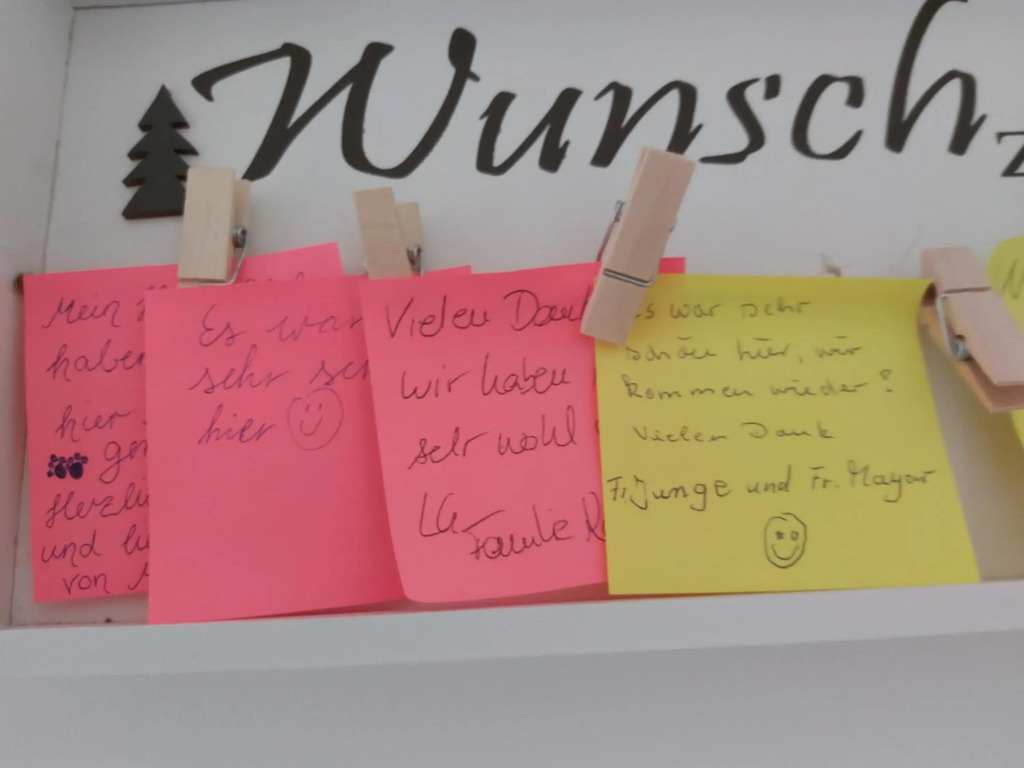 Wunsch
Mein
haben
hier
Herzli
und li
von
Es war
sehr sch
hier
Vielen Dank
wir haben
sehr wohl
LG
Familie R
Es war sehr
schön hier, wir
kommen wieder!
Vielen Dank
Fr. Junge und Fr. Mayar